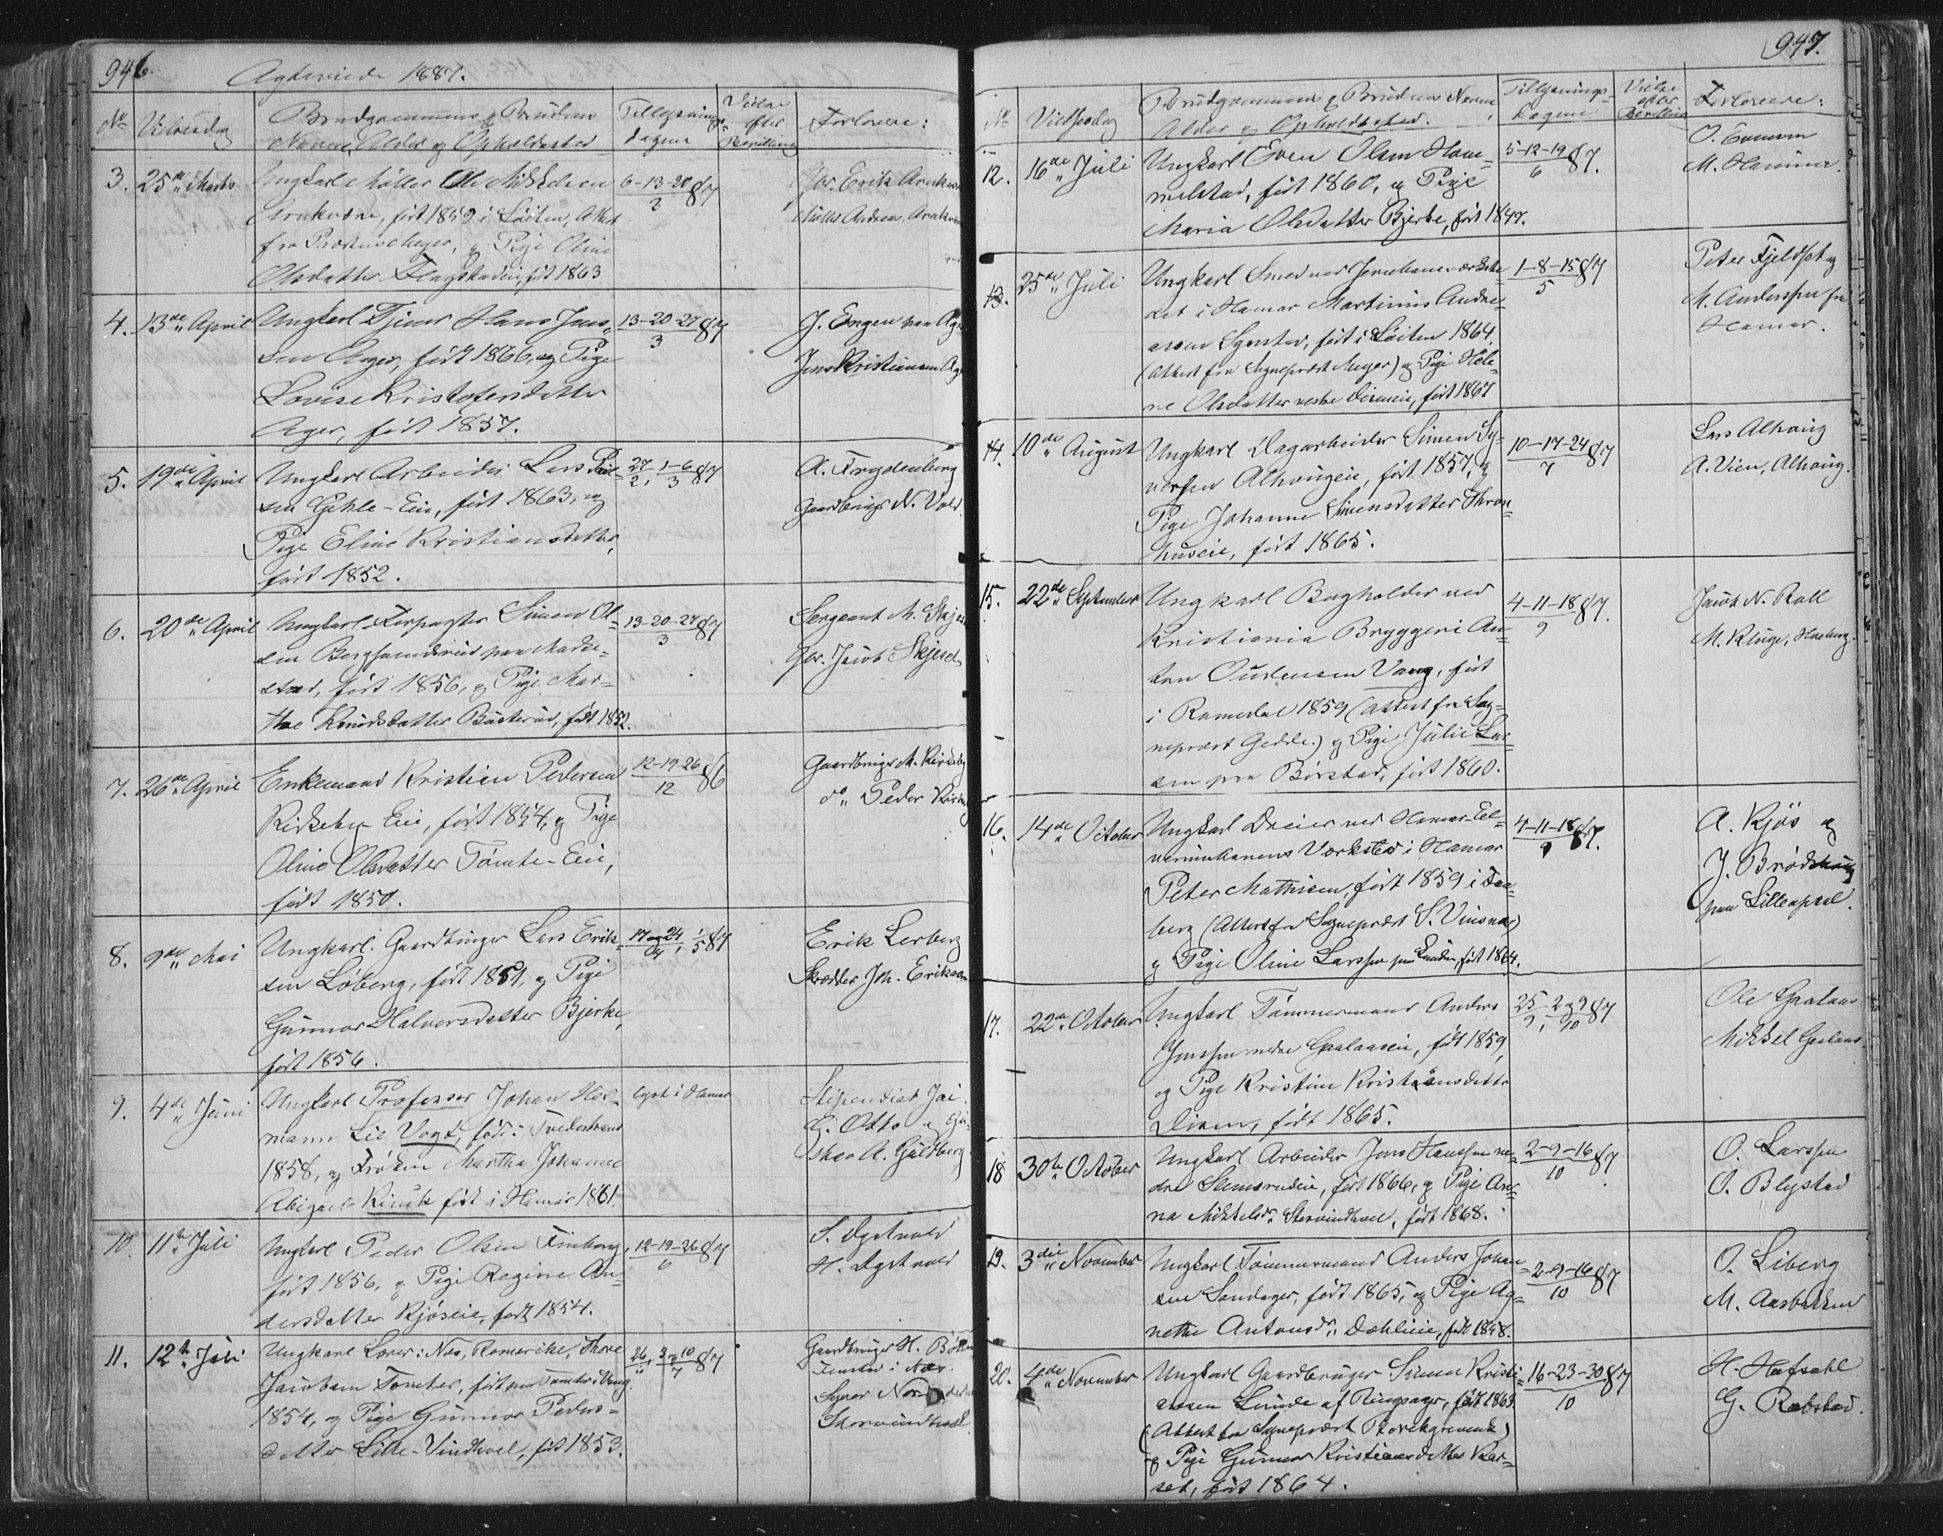 946.
Ægteviede 1887.
No Vielsesdag
Brudgommens og Brudens
Navne, Alder og Opholdssted
Tillysnings-
dagene
Vielse
efter
Bevilling
Forlovere:
3. 25de Marts
Ungkarl Møller Ole Mikkelsen
Arnkværn, født 1859 i Løiten, Attest
fra Præsten Meyer, og Pige Oline
Olsdatter Flagstadeie, født 1863
6-13-20/2 87
Gbr. Erik Arnkværn
Andreas Arnkværn
4. 13de April
Ungkarl Tjener Hans Jens-
sen Ager, født 1866, og Pige
Lovise Kristofersdatter
Ager, født 1857.
13-20-27/3 87
J. Engen paa Ager
Jens Kristiansen Ager
5. 19de April
Ungkarl Arbeider Lars
sen Gihle-Eie, født 1863, og
Pige Eline Kristiansdatter,
født 1852.
27/2, 1-6/3 87
A. Frydenberg
Gaardbruger N. Vold
6. 20de April
Ungkarl Forpagter Simen Ol-
sen Bergsenderud paa
stad, født 1856, og Pige Mar-
the Knudsdatter Busterud, født 1852.
13-20-27/3 87
Sergeant M. Skjes
Gbr. Jacob Skjeset
7. 26de April
Enkemand Kristian Pedersen
Kirkeby Eie, født 1854, og Pige
Oline Olsdatter Tomte-Eie,
født 1850.
12-19-26/12 86
Gaardbruger M. Kirkeby
do Peder Kirkeby
8. 9de Mai
Ungkarl Gaardbruger Lars Erik-
sen Løberg, født 1851, og Pige
Gunnor Halvorsdatter Bjerke,
født 1856.
17 og 24/4, 1/5 87
Erik Lerberg
Skrædder Joh. Eriksen
9. 4de Juni
Ungkarl Professor Johan Her-
mann Lie Vogt, født i Tvedestrand
1858, og Frøken Martha Johanne
Abigael Kinck født i Hamar 1861.
lyst i Hamar
Stipendiat Jai.
G. Otto og
A. Guldberg
10. 11te Juli
Ungkarl Peder Olsen Finborg,
født 1856, og Pige Regine An-
dersdatter Kjøseie, født 1854.
12-19-26/6 87
S. Dystvold
H. Dystvold
11. 12te Juli
Ungkarl Lærer i Næs, Romerike, Thore
Jacobsen Tomter, født paa Tomter i Vang
1854, og Pige Gunnor Peders-
datter Lille-Vindhvel, født 1853.
26/6, 3 og 10/7 87
Gaardbruger H.
i Næs.
Syver
947.
No Vielsesdag
Brudgommens og Brudens Navne
Alder og Opholdssted.
Tillysnings-
dagene
Vielse
efter
Bevilling
Forlovere:
12. 16de Juli
Ungkarl Even Olsen Ham-
melstad, født 1860, og Pige
Maria Olsdatter Bjerke, født 1847.
5-12-19/6 87.
O. Evensen
M. Hammer.
13. 25de Juli
Ungkarl Smed ved Jernbaneværkste-
det i Hamar Martinius Andre-
assen Lynstad, født i Løiten 1864,
(Attest fra Sognepræst Meyer) og Pige Hele-
ne Olsdatter nedre Dieneie, født 1867
1-8-15/5 87
Peter Fjeldset og
M. Anderssen fra
Hamar.
14. 10de August
Ungkarl Dagarbeider Simen Sy-
versen Alhougeie, født 1857, og
Pige Johanne Simensdatter Thron-
huseie, født 1865.
10-17-24/7 87
Lars Alhoug
A. Vien, Alhoug.
15. 22de September
Ungkarl Bogholder ved
Kristiania Bryggeri An-
ton Gudersen Vang, født
i Romedal 1859 (Attest fra Sog-
nepræst Gedde.) og Pige Julie Lar-
sen paa Børstad, født 1860.
4-11-18/9 87.
Jacob N. Roll
M. Kluge, Hoberg.
16. 14de October
Ungkarl Dreier ved Hamar-El-
verumbanens Værksted i Hamar
Peter Mathisen, født 1859 i Faa-
berg (Attest fra Sognepræst S. Vinsnes)
og Pige Oline Larssen paa Lunden, født 1864.
4-11-18/9 87.
A. Kjøs og
J. Brødshaug
paa Lilleapaal.
17. 22de October
Ungkarl Tømmermand Anders
Jenssen nedre Gaalaaseie, født 1859,
og Pige Kristine Kristiansdatter
Dieen, født 1865.
25/9, 2 og 9/10 87
Ole Gaalaas
Mikkel Gaalaas
18 30te October
Ungkarl Arbeider Jens Hanssen ne-
dre Stemsrudeie, født 1866, og Pige An-
na Mikkelsdr. Storvindhvel, født 1868.
2-9-16/10 87
O. Larssen
O. Blystad
19. 3die November
Ungkarl Tømmermand Anders Johan-
sen Sandager, født 1865, og Pige Ag-
nethe Antonsdr. Dæhlieie, født 1858.
2-9-16/10 87
O. Liberg
M. Aasbakken
20. 4de November
Ungkarl Gaardbruger Simen Kristi-
ansen Linde af Ringsager, født 1863
(Attest fra Sognepræst
og Pige Gunnor Kristiansdatter Kor-
set, født 1864.
16-23-30/10 87
H. Hafsahl
G. Rabstad.